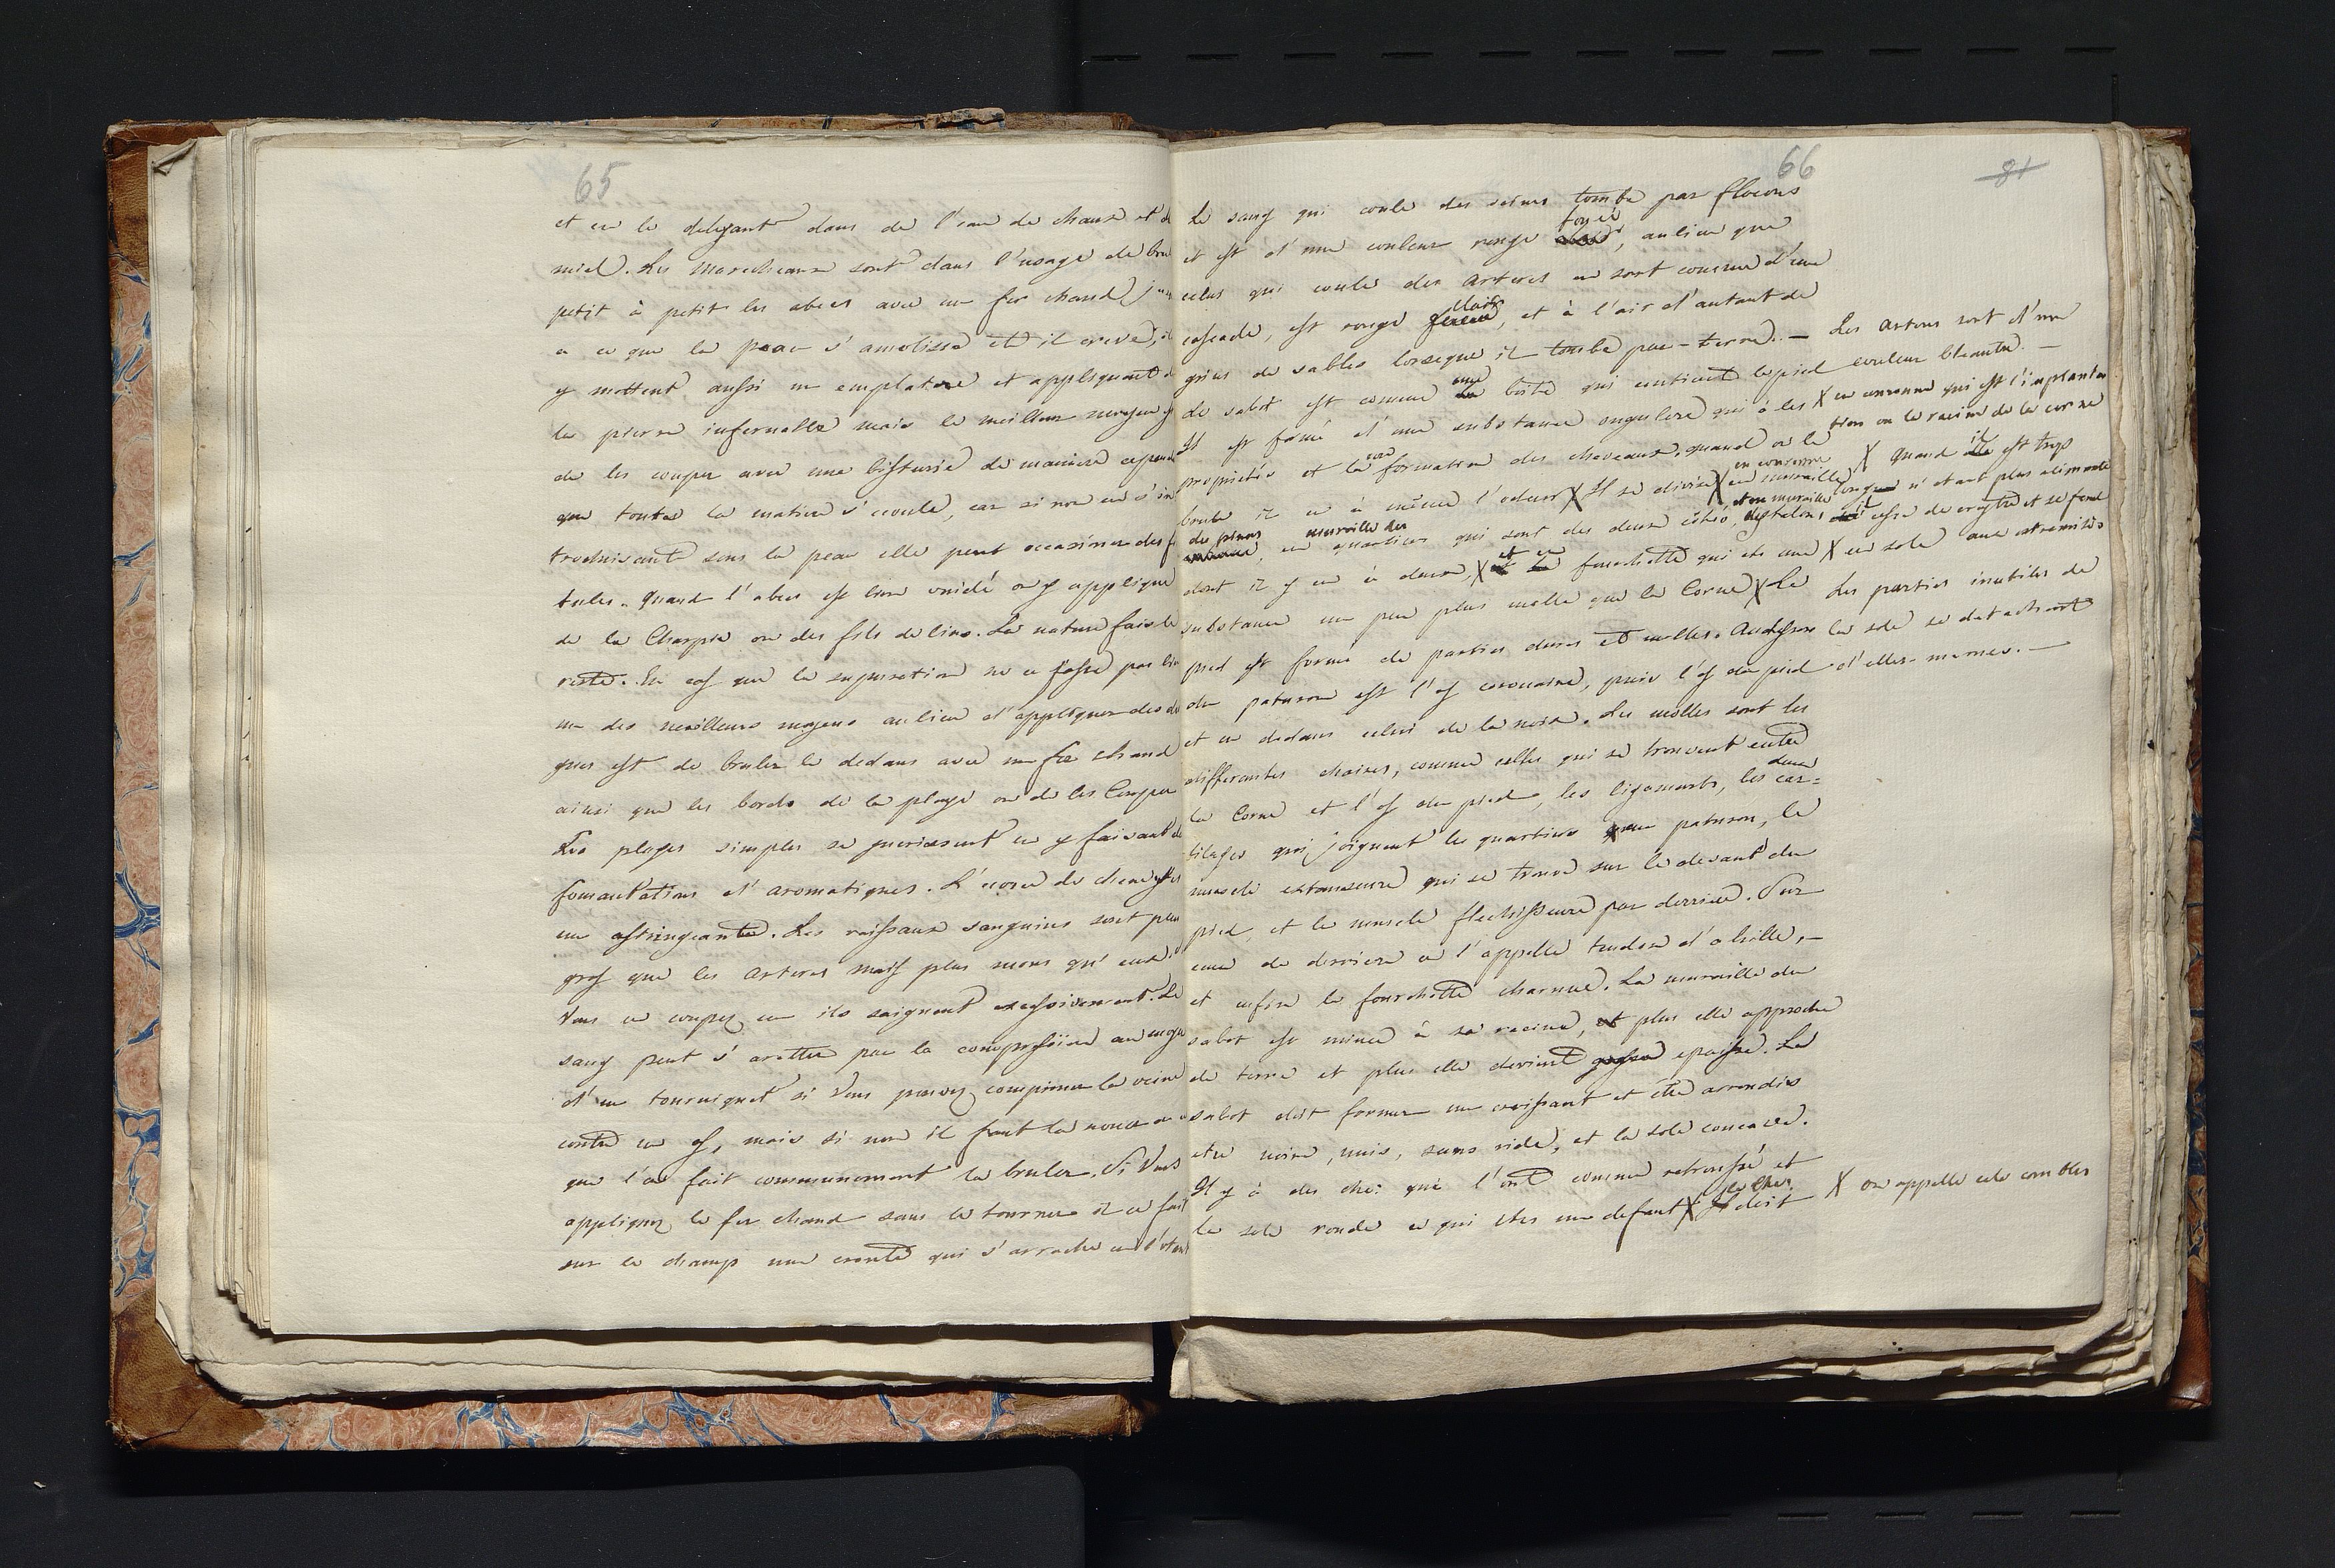 65
et en le delayant dans de l'eau de chaux et d
miel. Les Marechaux sont dans l'usage de bru
petit à petit les abces avec un fer chaud jus
a ce que la peau s'amolisse et il creve, il
y mettent aussi un emplatre et appliquent d
la pierre infernalle mais le meilleur moyen
de les couper avec une bisturie de maniere cepend
que toutes la matiere s'ecoule, car si non en s'in
troduisant sous la peau elle peut occasioner des fi
tules. Quand l'abces est bien vuidé on y applique
de la Charpie ou des fils de lins. La nature fais le
reste. En cas que la supuration ne ce fasse pas bien
un des meilleurs moyens au lieu d'appliquer des
ques est de bruler le dedans avec un fer chaud
ainsi que les bords de la playe ou de les Couper
Les playes simples se guerissent en y faisant de
fomantations d'aromatiques. L'ecorce de chene est
un astringeante. Les vaissaux sanguins sont plus
gros que les arteres mais plus mons qu'eux.
Vous en coupez un ils saignent excessivement. Le
sang peut s'aretter par la compressïon au moyen
d'un tourniquet si vous pouvez comprimer la veine
contre un os, mais si non il faut la nouer ou
que l'on fait communement la bruler. Si Vous
appliquez le fer chaud sans le tourner il ce fait
sur le champ une croute qui s'arrache en l'otant
66
81
Le sang qui coule des veines tombe par flocons
foncé
et est d'une couleur rouge, au lieu que
celui qui coule des arteres en sort comme d'une
clair
cascade, est rouge, et à l'air d'autant de
grins de sables lorseque il tombe par-terre. — Les arteres sont d'une
couleur bleautre. —
une
Le sabot est comme la boite qui contient le pied X en couronne qui est l'inplanta
Il est formé d'une substance ongulere qui à les tion ou la racine de la corne
propriétés et la formation des cheveaux. quand on le
brule il en à même l'odeur X Il se divise X en muraille X Quand il est trop
en couronne
longue n'etant plus alimenté
et en muraille des talons il cesse de croître et se fend
de pinces muraille des
, en quartiers qui sont des deux côtés,
dont il y en à deux, X et en fourchette qui est une X en sole aux extremités
substance un peu plus molle que la Corne X Le Les parties inutiles de
pied est formé de parties dures et molles. Audessous la sole se detachent
du paturon est l'os coronaire, puis l'os du pied d'elles-memes. —
et en dedans celui de la noix. Les molles sont les
differentes chaires, comme celles qui se trouvent entre
deux
la Corne et l'os du pied, les ligaments, les car=
tilages qui joignent les quartiers au paturon, le
muscle extenseure qui se trouve sur le devant du
pied, et le muscle flechisseure par derriere. Sur
celui de derriere on l'appelle tendon d'achille, —
et enfin la fourchette charnue. La muraille du
sabot est mince à sa racine, et plus elle approche
de terre et plus elle devient epaisse. Le
sabot doit former un croissant et etre arrondis
etre noire, unis, sans ride, et la sole concavee.
Il y à des che: qui l'ont comme retroussé et
la sole ronde ce qui etes un defaut X Il doit X on appelle cela combles